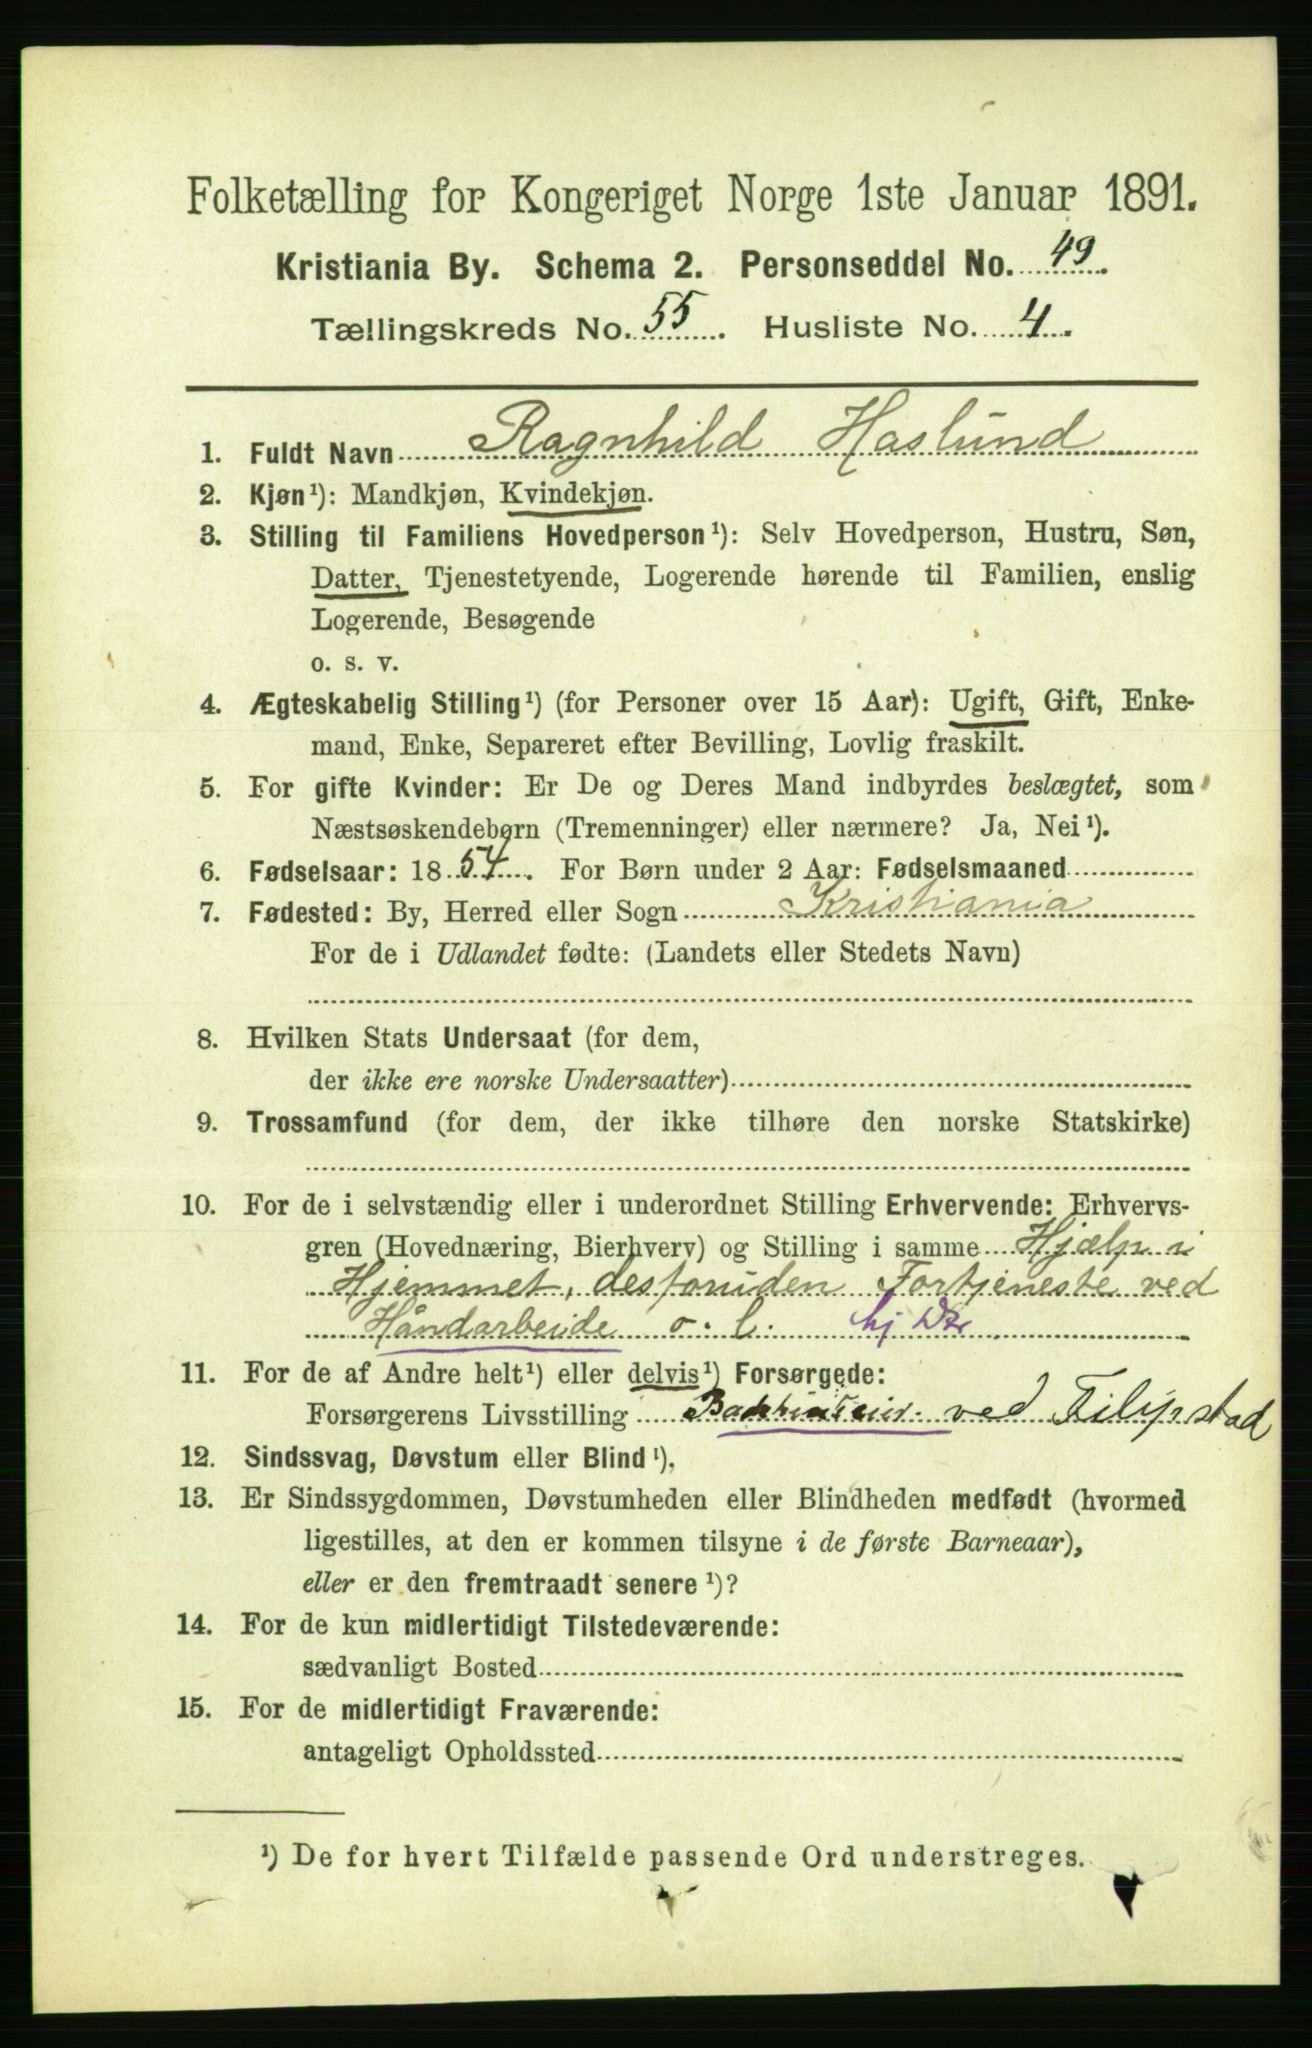 Folketælling for Kongeriget Norge 1ste Januar 1891.
Kristiania By. Schema 2. Personseddel No. 49.
Tællingskreds No. 55. Husliste No. 4.
1. Fuldt Navn Ragnhild Haslund
2. Kjøn¹): Mandkjøn, Kvindekjøn.
3. Stilling til Familiens Hovedperson¹): Selv Hovedperson, Hustru, Søn,
Datter, Tjenestetyende, Logerende hørende til Familien, enslig
Logerende, Besøgende
o. s. v.
4. Ægteskabelig Stilling¹) (for Personer over 15 Aar): Ugift, Gift, Enke-
mand, Enke, Separeret efter Bevilling, Lovlig fraskilt.
5. For gifte Kvinder: Er De og Deres Mand indbyrdes beslægtet, som
Næstsøskendebørn (Tremenninger) eller nærmere? Ja, Nei¹).
6. Fødselsaar: 1854. For Børn under 2 Aar: Fødselsmaaned
7. Fødested: By, Herred eller Sogn Kristiania
For de i Udlandet fødte: (Landets eller Stedets Navn)
8. Hvilken Stats Undersaat (for dem,
der ikke ere norske Undersaatter)
9. Trossamfund (for dem, der ikke tilhøre den norske Statskirke)
10. For de i selvstændig eller i underordnet Stilling Erhvervende: Erhvervs-
gren (Hovednæring, Bierhverv) og Stilling i samme Hjælp i
Hjemmet, desforuden Fortjeneste ved
Håndarbeide o. l. hj Dtr
11. For de af Andre helt¹) eller delvis¹) Forsørgede:
Forsørgerens Livsstilling ved Filipstad
12. Sindssvag, Døvstum eller Blind¹).
13. Er Sindssygdommen, Døvstumheden eller Blindheden medfødt (hvormed
ligestilles, at den er kommen tilsyne i de første Barneaar),
eller er den fremtraadt senere¹)?
14. For de kun midlertidigt Tilstedeværende:
sædvanligt Bosted
15. For de midlertidigt Fraværende:
antageligt Opholdssted
¹) De for hvert Tilfælde passende Ord understreges.